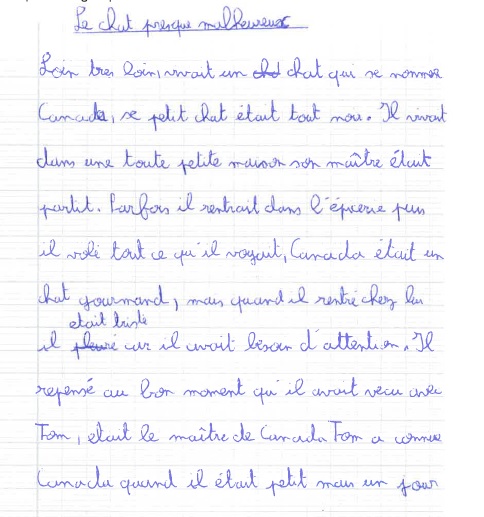 Le chat presque malheureux
Loin tres loin, vivait un chat qui se nommer
Canada, se petit chat était tout noir. Il vivait
dans une toute petite maison son maître était
partit. Parfois il rentrait dans l'épicerie puis
il volé tout ce qu'il voyait, Canada était un
chat gourmand, mais quand il rentré chez lui
etait triste
il pleuré car il avait besoin d'attention. Il
repensé au bon moment qu'il avait vecu avec
Tom, etait le maître de Canada Tom a connue
Canada quand il était petit mais un jour